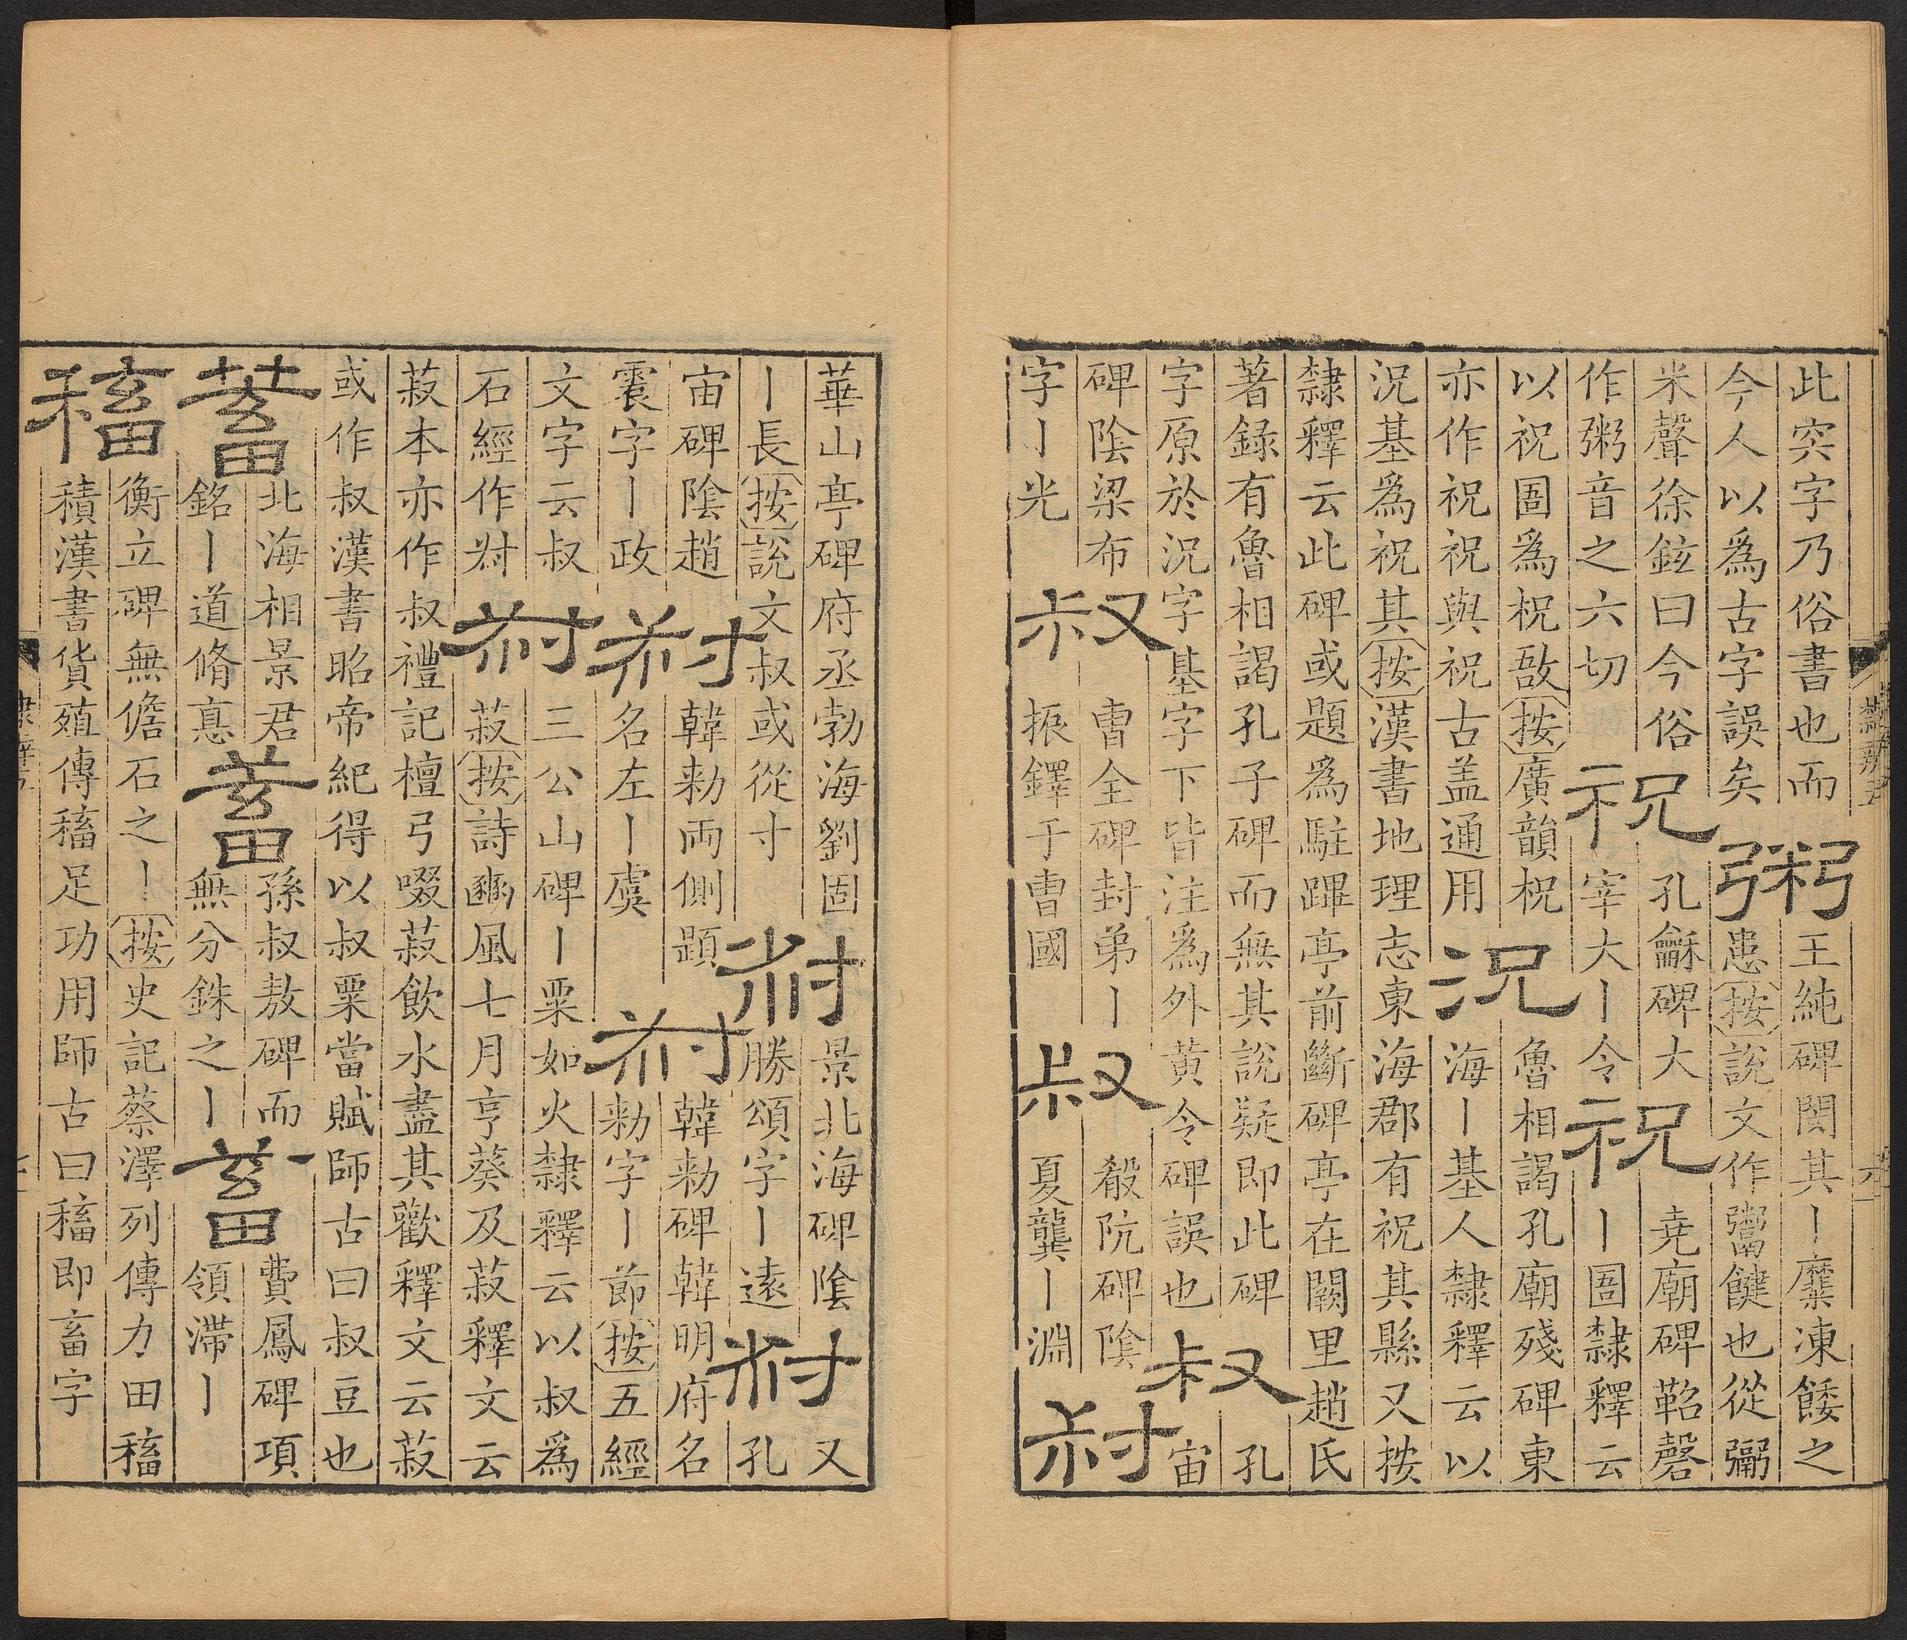 此突字乃俗書也而
今人以為古字誤矣
粥
王純碑閔其丨糜凍餧之
患按說文作鬻鍵也從䰜
米聲徐鉉曰今俗
作粥音之六切
祝
孔龢碑大
宰大丨令
祝
堯廟碑鞀磬
丨圄隸釋云
以祝圄為柷敔按廣韻柷
亦作祝祝與祝古盖通用
況
魯相謁孔廟殘碑東
海丨基人隸釋云以
況基為祝其按漢書地理志東海郡有祝其縣又按
隸釋云此碑或題為駐蹕亭前斷碑亭在闕里趙氏
著錄有魯相謁孔子碑而無其說疑即此碑
字原於況字基字下皆注為外黃令碑誤也
叔
孔
宙
碑陰梁布
字丨光
叔
曹全碑封弟丨
振鐸于曹國
叔
殽阬碑陰
夏龔丨淵
𡬧
華山亭碑府丞勃海劉固
丨長按說文叔或從寸
𡬧
景北海碑陰
勝頌字丨遠
𡬧
又
孔
宙碑陰趙
震字丨政
𡬧
韓勑兩側題
名左丨虞
𡬧
韓勑碑韓明府名
勑字丨節按五經
文字云叔
石經作𡬧
𡬧
三公山碑丨粟如火隸釋云以叔為
菽按詩豳風七月亨葵及菽釋文云
菽本亦作叔禮記檀弓啜菽飲水盡其歡釋文云菽
或作叔漢書昭帝紀得以叔粟當賦師古曰叔豆也
蓄
北海相景君
銘丨道脩悳
蓄
孫叔敖碑而
無分銖之丨
蓄
費鳳碑項
領滯丨
稸
衡立碑無儋石之丨按史記蔡澤列傳力田稸
積漢書貨殖傳稸足功用師古曰稸即畜字